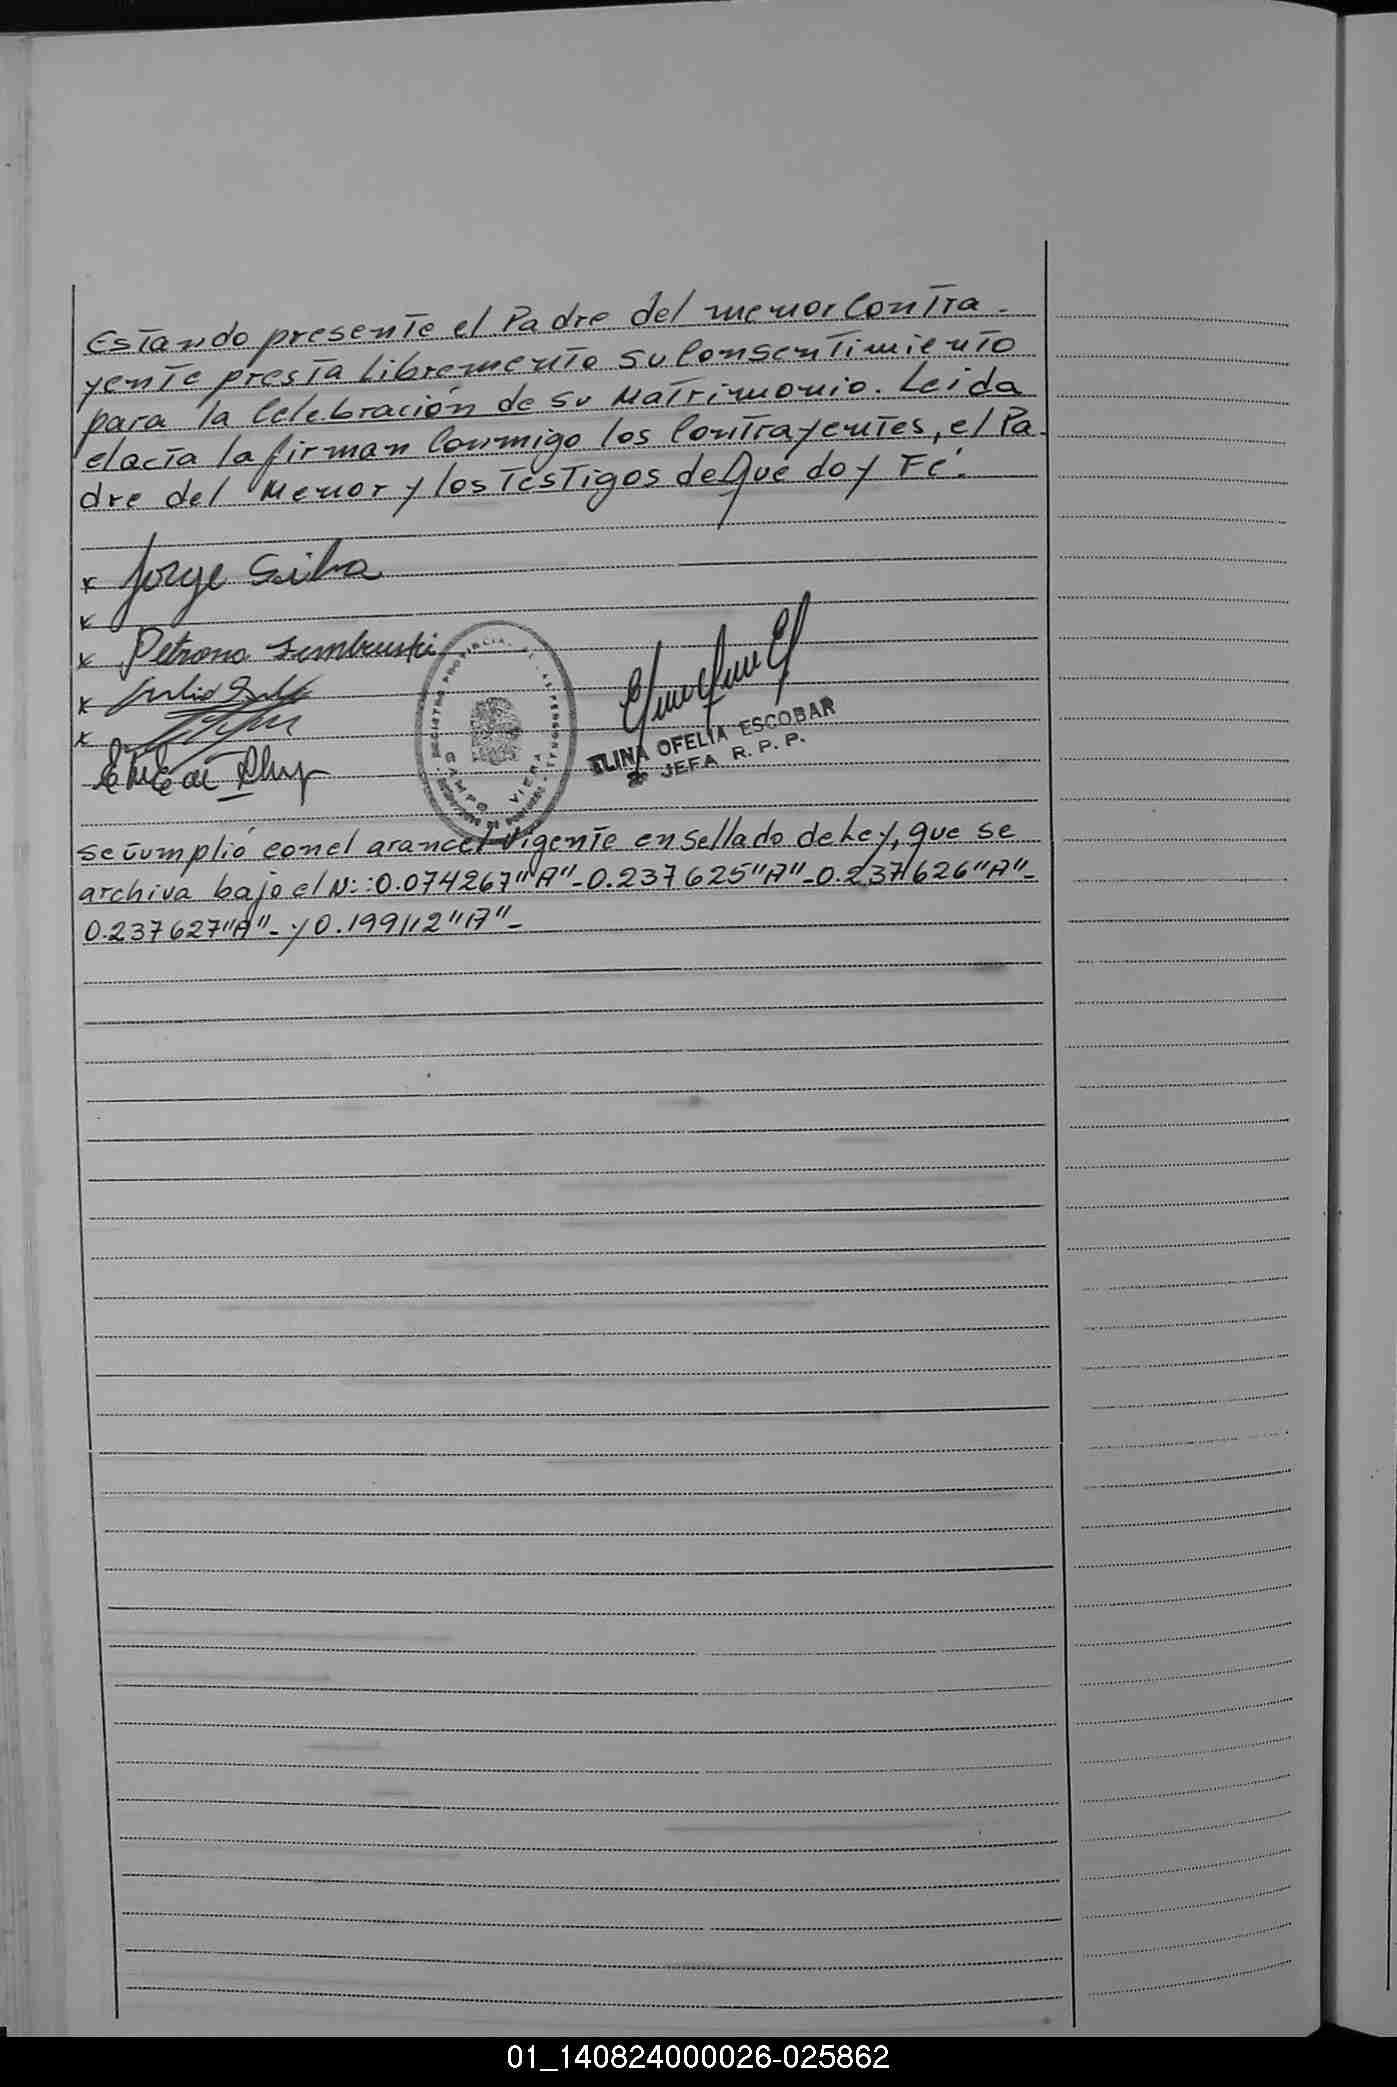 Estando presente el Padre del menor Contra-
yente presta Libremente su Consentimiento
para la Celebración de su Matrimonio. Leida
el acta la firman Conmigo los Contrayentes, el Pa-
dre del Menor y los Testigos de Que doy Fé.
x Jorge Silva
x
x Petrona
x Julio
x
REGISTRO PROVINCIAL DE LAS PERSONAS
CAMPO VIERA
ELINA OFELIA ESCOBAR
JEFA R. P. P.
Se cumplió con el arancel Vigente en Sellado de Ley, que se
archiva bajo el N:: 0.074267"A"-0.237625"A"-0.237626"A"-
0.237627"A"- y 0.199112"A"-
01_140824000026-025862